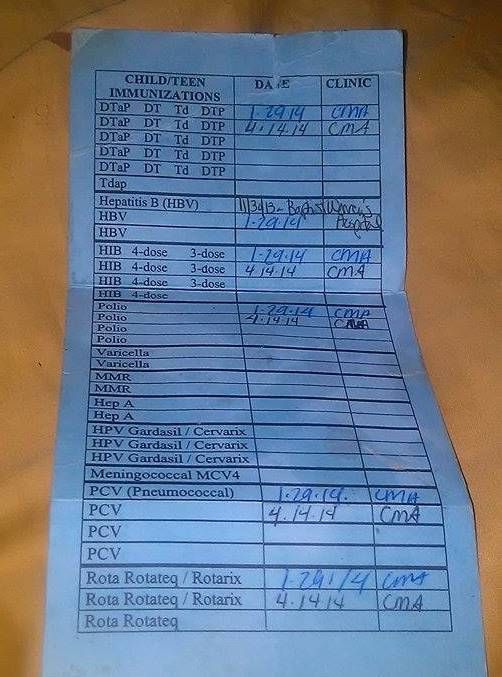 CHILD/TEEN IMMUNIZATIONS DATE CLINIC
DTaP DT Td DTP 1·29·14 CMA
DTaP DT Td DTP 4·14·14 CMA
DTaP DT Td DTP
DTaP DT Td DTP
DTaP DT Td DTP
Tdap
Hepatitis B (HBV) Baptist Women's Hospital
HBV 1-29-14
HBV
HIB 4-dose 3-dose 1-29-14 CMA
HIB 4-dose 3-dose 4·14·14 CMA
HIB 4-dose 3-dose
HIB 4-dose
Polio 1-29-14 CMA
Polio 4·14·14 CMA
Polio
Polio
Varicella
Varicella
MMR
MMR
Hep A
Hep A
HPV Gardasil / Cervarix
HPV Gardasil / Cervarix
HPV Gardasil / Cervarix
Meningococcal MCV4
PCV (Pneumococcal) 1-29-14. CMA
PCV 4.14.14 CMA
PCV
PCV
Rota Rotateq / Rotarix 1-29-14 CMA
Rota Rotateq / Rotarix 4·14·14 CMA
Rota Rotateq